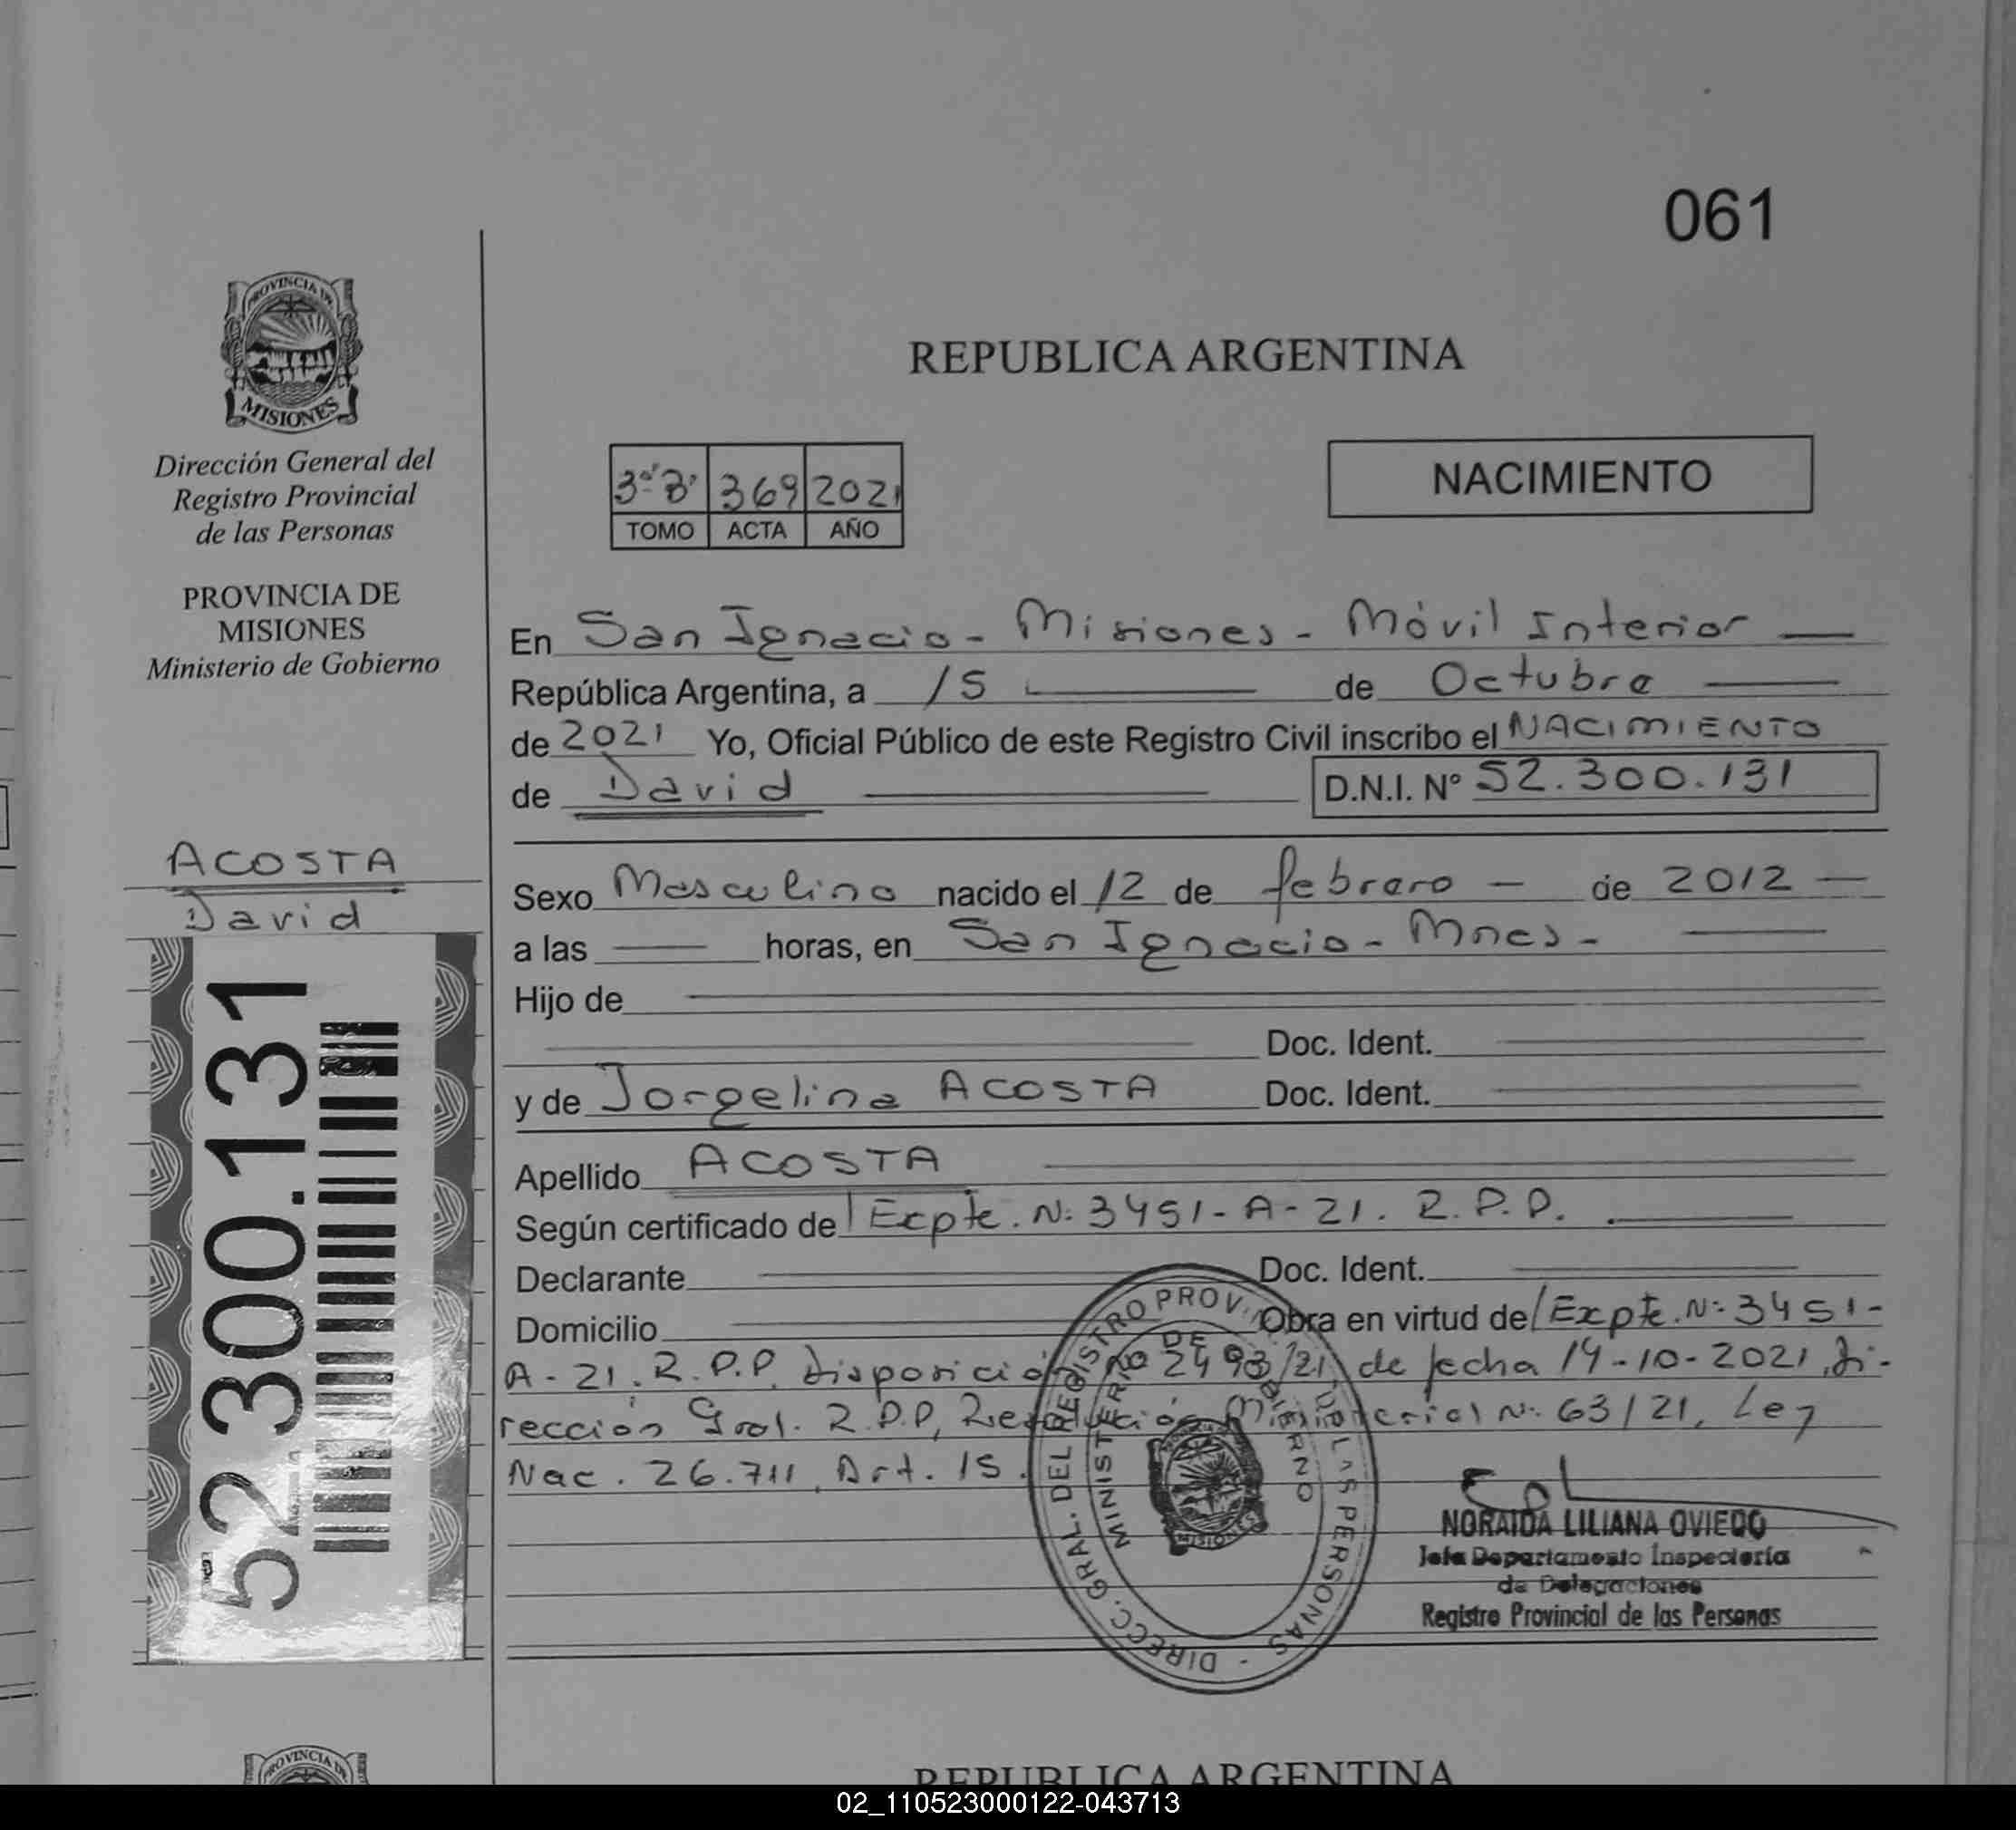 061
PROVINCIA DE
MISIONES
Dirección General del
Registro Provincial
de las Personas
PROVINCIA DE
MISIONES
Ministerio de Gobierno
ACOSTA
David
52.300.131
REPUBLICA ARGENTINA
3º B 369 2021
TOMO ACTA AÑO
NACIMIENTO
En San Ignacio - Misiones - Móvil Interior
República Argentina, a 15 de Octubre
de 2021 Yo, Oficial Público de este Registro Civil inscribo el NACIMIENTO
de David D.N.I. Nº 52.300.131
Sexo Masculino nacido el 12 de febrero - de 2012
a las horas, en San Ignacio - Mnes -
Hijo de
Doc. Ident.
y de Jorgelina ACOSTA Doc. Ident.
Apellido ACOSTA
Según certificado de Expte. Nº 3451-A-21. R.P.P.
Declarante Doc. Ident.
Domicilio Obra en virtud de Expte. Nº 3451-
A-21. R.P.P. Disposición no 2493/21 de fecha 14-10-2021, Di-
rección Gral. R.P.P, Resolución Ministerial Nº 63/21, Ley
Nac. 26.711, Art. 15.
DIRECC. GRAL. DEL REGISTRO PROV. DE LAS PERSONAS -
MINISTERIO DE GOBIERNO
MISIONES
NORAIDA LILIANA OVIEDO
Jefa Departamento Inspectoría
de Delegaciones
Registro Provincial de las Personas
PROVINCIA DE
REPUBLICA ARGENTINA
02_110523000122-043713